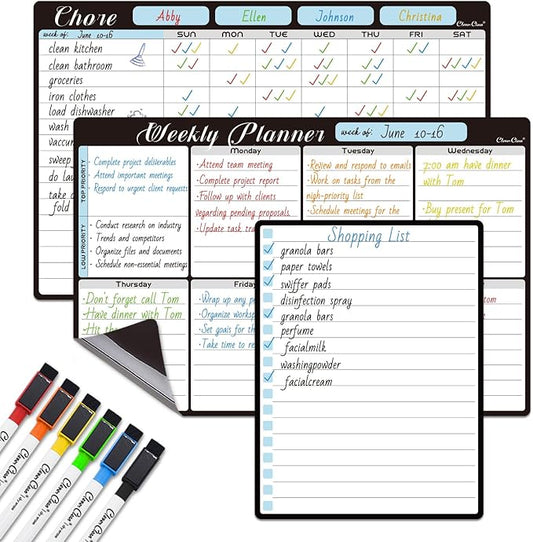 Chore
Abby
Ellen
Johnson
Christina
Clever Clean
week of: June 10-16
SUN
MON
TUE
WED
THU
FRI
SAT
clean kitchen
clean bathroom
groceries
iron clothes
load dishwasher
wash
vaccum
sweep
do la
take
fold
Weekly Planner
week of: June 10-16
Monday
Tuesday
Wednesday
TOP PRIORITY
·Complete project deliverables
Attend important meetings
Respond to urgent client requests
LOW PRIORITY
·Conduct research on industry
·Trends and competitors
Organize files and documents
·Schedule non-essential meetings
·Attend team meeting
·Complete project report
·Follow up with clients
regarding pending proposals
·Update task tra
·Review and respond to emails
·Work on tasks from the
nigh-priority list
·Schedule meetings for the
7:00 am have dinner
with Tom
Buy present for Tom
Thursday
·Don't forget call Tom
Have dinner with Tom
Hit the
Frida
·Wrap up any p
·Organize worksp
·Set goals for th
·Take time to re
Shopping List
granola bars
paper towels
swiffer pads
disinfection spray
granola bars
perfume
facialmilk
washingpowder
facialcream